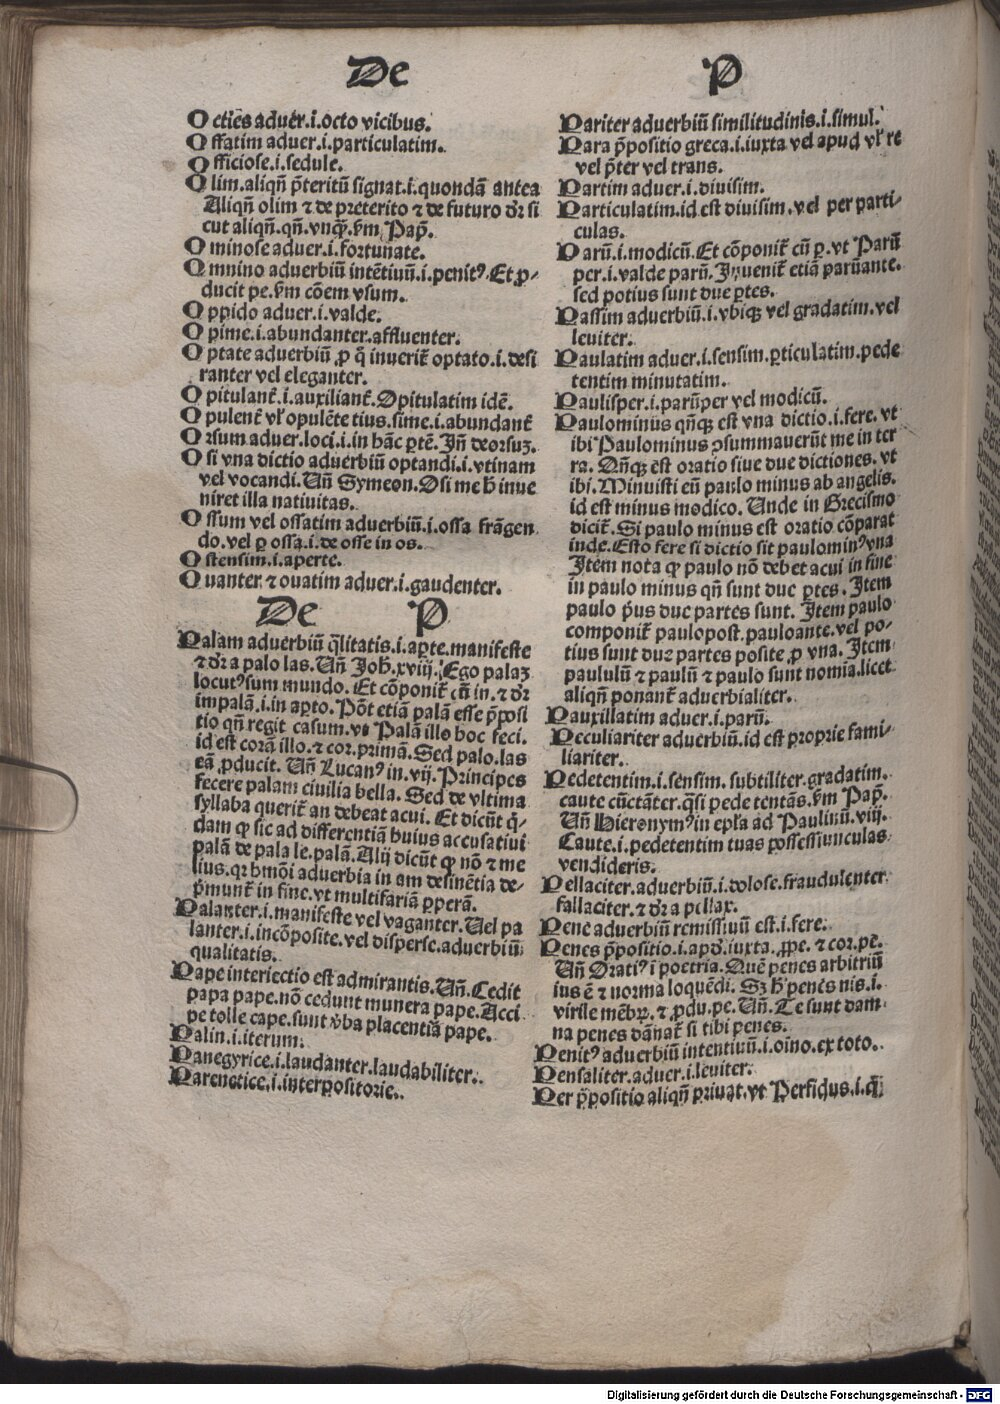 De P
Octiēs aduer.i.octo vicibus.
Offatim aduer.i.particulatim.
Officiose.i.sedule.
Olim.aliqñ p̄teritū signat.i.quondā antea
Aliqñ olim ⁊ de preterito ⁊ de futuro dr̄ si
cut aliqñ.qñ.vnqꝫ.ẜm Pap̄.
Ominose aduer.i.fortunate.
Omnino adverbiū intētiuū.i.penitꝰ.Et ꝓ-
ducit pe.ẜm cōem vsum.
Oppido aduer.i.valde.
Opime.i.abundanter.affluenter.
Optate aduerbiū ꝓ q̄ inuenit̄ optato.i.desi
ranter vel eleganter.
Opitulant̄.i.auxiliant̄.Opitulatim idē.
Opulent̄ vl̄ opulēte tius.sime.i.abundant̄
Orsum aduer.loci.i.in hāc ꝑtē.Iñ deorsuꝫ.
Osi vna dictio aduerbiū optandi.i.vtinam
vel vocandi.Uñ Symeon.Osi me h̄ inue
niret illa natiuitas.
Ossum vel ossatim aduerbiū.i.ossa frāgen
do.vel ꝑ ossa.i.de osse in os.
Ostensim.i.aperte.
Ouanter ⁊ ouatim aduer.i.gaudenter.
De P
Palam aduerbiū q̄litatis.i.aꝑte.manifeste
⁊ dr̄ a palo las.Uñ Joh̄.xviij.Ego palaꝫ
locutꝰ sum mundo. Et cōponit̄ cū in.⁊ dr̄
impalā.i.in apto.Pōt etiā palā esse p̄posi
tio qñ regit casum.vt Palā illo hoc feci.
id est corā illo.⁊ cor.primā.Sed palo.las
eā ꝓducit. Uñ Lucanꝰ in.vij.Principes
fecere palam ciuilia bella. Sed de vltima
syllaba querit̄ an debeat acui. Et dicūt q̄-
dam ꝙ sic ad differentiā huius accusatiui
palā de pala le.palā.Alij dicūt ꝙ nō ⁊ me
lius.qꝛ hmōi aduerbia in am desinētia de-
p̄munt̄ in fine.vt multifariā ꝑperā.
Palanter.i.manifeste vel vaganter.Uel pa
lanter.i.incōposite.vel disperse.aduerbiū
qualitatis.
Pape interiectio est admirantis.Uñ.Cedit
papa pape.nō cedunt munera pape.Acci
pe tolle cape.sunt v̄ba placentiā pape.
Palin.i.iterum.
Panegyrice.i.laudanter.laudabiliter.
Parenetice.i.interpositorie.
Pariter aduerbiū similitudinis.i.simul.
Para p̄positio greca.i.iuxta vel apud vl̄ re
vel p̄ter vel trans.
Partim aduer.i.diuisim.
Particulatim.id est diuisim.vel per parti-
culas.
Parū.i.modicū.Et cōponit̄ cū ꝑ.vt Parū
per.i.valde parū.Inuenit̄ etiā parūante.
sed potius sunt due ꝑtes.
Passim aduerbiū.i.vbiqꝫ vel gradatim.vel
leuiter.
Paulatim aduer.i.sensim.ꝑticulatim.pede
tentim minutatim.
Paulisper.i.parūper vel modicū.
Paulominus qñqꝫ est vna dictio.i.fere.vt
ibi Paulominus ↄsummauerūt me in ter
ra. Qñqꝫ est oratio siue due dictiones.vt
ibi.Minuisti eū paulo minus ab angelis.
id est minus modico. Unde in Grecismo
dicit̄. Si paulo minus est oratio cōparat
inde.Esto fere si dictio sit paulominꝰ vna
Item nota ꝙ paulo nō debet acui in fine
in paulo minus qñ sunt due ꝑtes. Item
paulo p̄us due partes sunt. Item paulo
componit̄ paulopost.pauloante.vel po-
tius sunt due partes posite ꝓ vna. Item
paululū ⁊ paulū ⁊ paulo sunt nomia.licet
aliqñ ponant̄ aduerbialiter.
Pauxillatim aduer.i.parū.
Peculiariter aduerbiū.id est proprie fami-
liariter.
Pedetentim.i.sensim.subtiliter.gradatim.
caute cūctāter.q̄si pede tentās.ẜm Pap̄.
Uñ Hieronymꝰ in epl̄a ad Paulinū.viij.
Caute.i.pedetentim tuas possessiunculas
vendideris.
Pellaciter.aduerbiū.i.dolose.fraudulenter
fallaciter.⁊ dr̄ a pellax.
Pene aduerbiū remissiuū est.i.fere.
Penes p̄positio.i.apd̄.iuxta.ꝓpe.⁊ cor.pe.
Uñ Oratiꝰ ī poetria.Quē penes arbitriū
ius ē ⁊ norma loquēdi. Sꝫ h̄ penes nis.i.
virile mēbꝝ.⁊ ꝓdu.pe.Uñ. Te sunt dam
na penes dānat̄ si tibi penes.
Penitꝰ aduerbiū intentiuū.i.oīno.ex toto.
Pensaliter.aduer.i.leuiter.
Per p̄positio aliqñ priuat.vt Perfidus.i.q̄
Digitalisierung gefördert durch die Deutsche Forschungsgemeinschaft - DFG